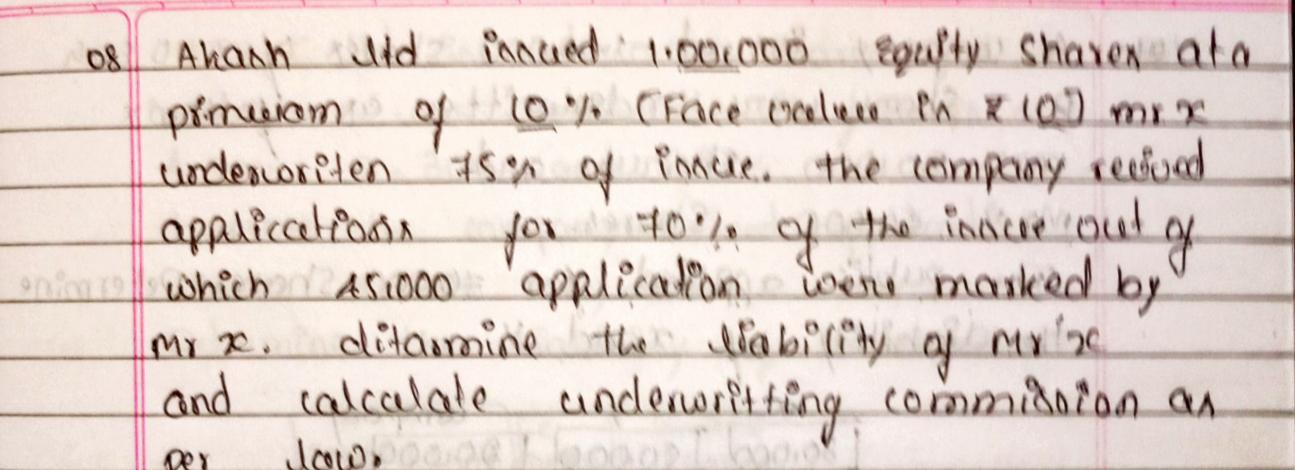 08 Akash Ltd issued 1.00.000 Equity Shares at a
primeuiom of 10% (Face value is ₹ 10) mr x
underwriten 75% of issue. the company recived
applications for 70% of the issue out of
which 45,000 application were marked by
Mr x. ditarmine the liability of Mr x
and calculate underwritting commission as
per law.